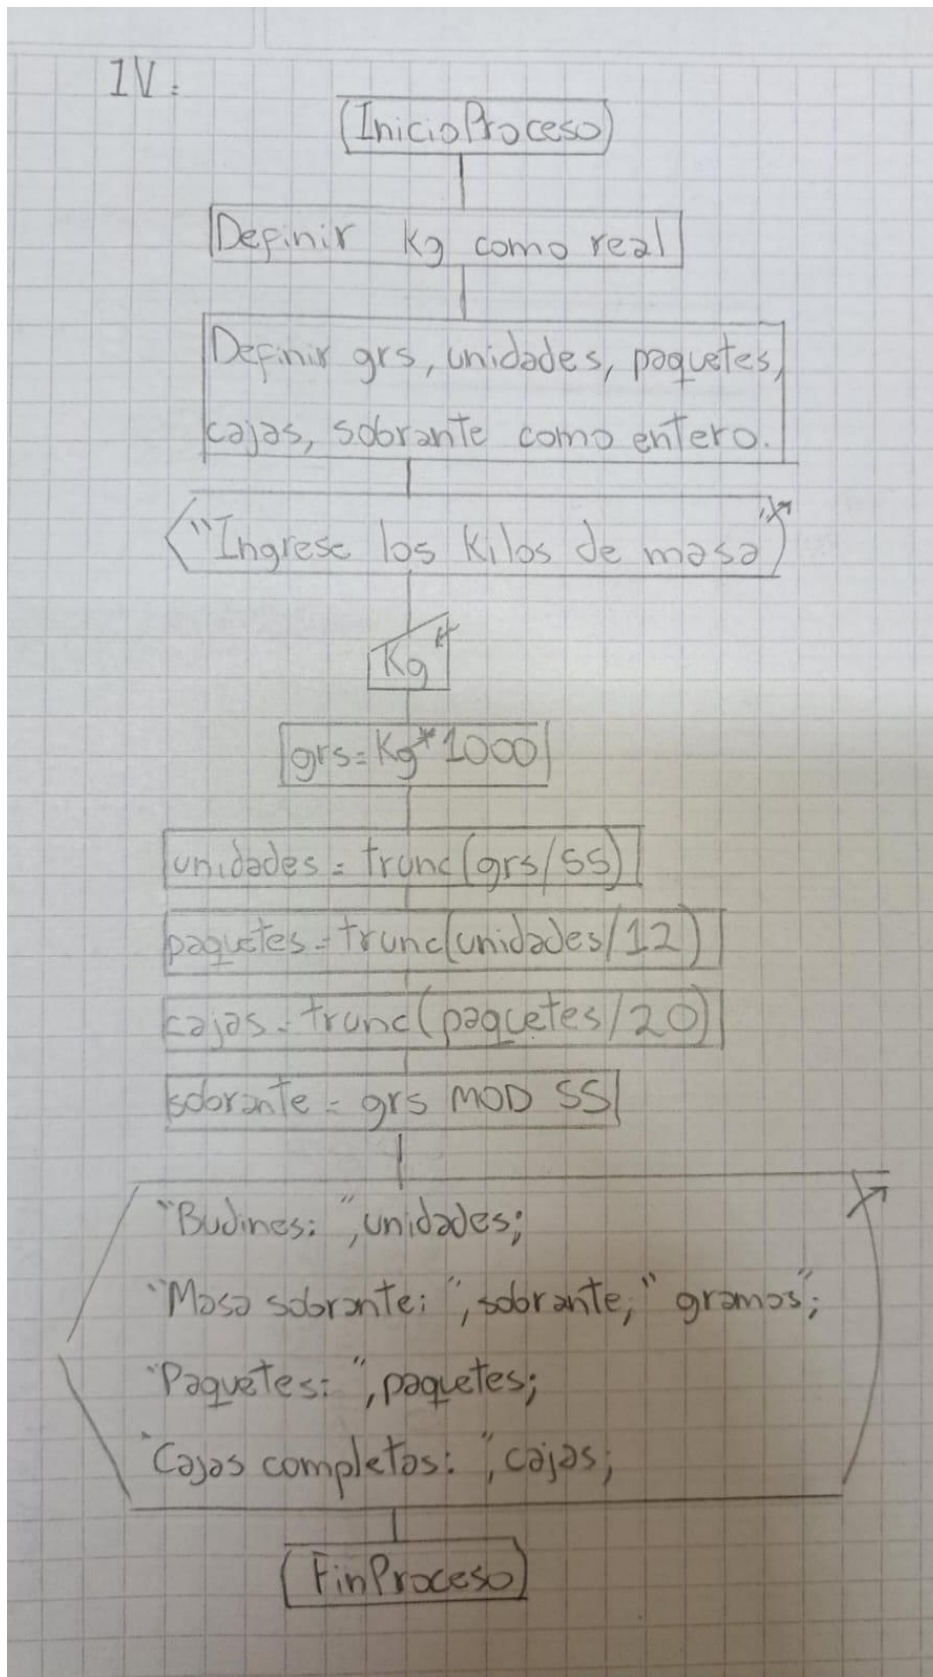 IV:
InicioProceso
Definir Kg como real
Definir grs, unidades, paquetes,
cajas, sobrante como entero.
"Ingrese los Kilos de masa"
Kg
grs=Kg*1000
unidades = trunc(grs/55)
paquetes = trunc(unidades/12)
cajas = trunc(paquetes/20)
sobrante = grs MOD 55
"Budines: ",unidades;
"Masa sobrante: ",sobrante," gramos";
"Paquetes: ",paquetes;
"Cajas completas: ",cajas;
FinProceso